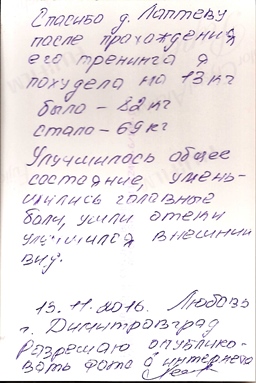 Спасибо д. Лаптеву
после прохождения
его тренинга я
похудела на 13 кг
было – 82 кг
стало – 69 кг
Улучшилось общее
состояние, умень-
шились головные
боли, ушли отеки
улучшился внешний
вид.
13.11.2016. Любовь
г. Димитровград
Разрешаю опублико-
вать фото в интернете